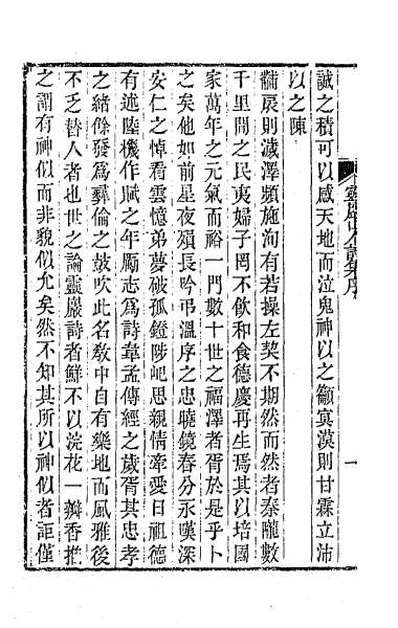 誠之積可以感天地而泣鬼神以之籲寞漠則甘霖立沛
以之陳
黼扆則濊澤頻施洵有若操左契不期然而然者秦隴數
千里間之民夷婦子罔不飲和食德慶再生焉其以培國
家萬年之元氣而裕一門數十世之福澤者胥於是乎卜
之矣他如前星夜殞長吟弔溫序之忠曉鏡春分永嘆深
安仁之悼看雲憶弟夢破孤鐙陟屺思親情牽愛日祖德
有述陸機作賦之年勵志爲詩韋孟傳經之歲胥其忠孝
之緒餘發爲彝倫之鼓吹此名敎中自有樂地而風雅後
不乏替人者也世之論靈巖詩者鮮不以浣花一瓣香推
之謂有神似而非貌似允矣然不知其所以神似者詎僅
靈巖山人詩集序
一